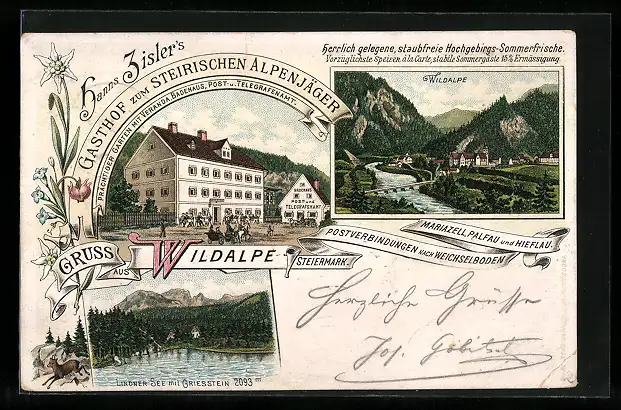 Hanns Zisler's
GASTHOF ZUM STEIRISCHEN ALPENJÄGER
PRÄCHTIGER GARTEN MIT VERANDA, BADEHAUS, POST- U. TELEGRAFENAMT.
Herrlich gelegene, staubfreie Hochgebirgs-Sommerfrische.
Vorzüglichste Speisen à la Carte, stabile Sommergäste 15% Ermässigung.
WILDALPE
BADEHAUS
POST und
TELEGRAFENAMT
GRUSS
AUS
WILDALPE
STEIERMARK.
POSTVERBINDUNGEN NACH WEICHSELBODEN
MARIAZELL, PALFAU und HIEFLAU.
Herzliche Grüsse
Jos.
LINDNER SEE mit GRIESSTEIN 2093 m